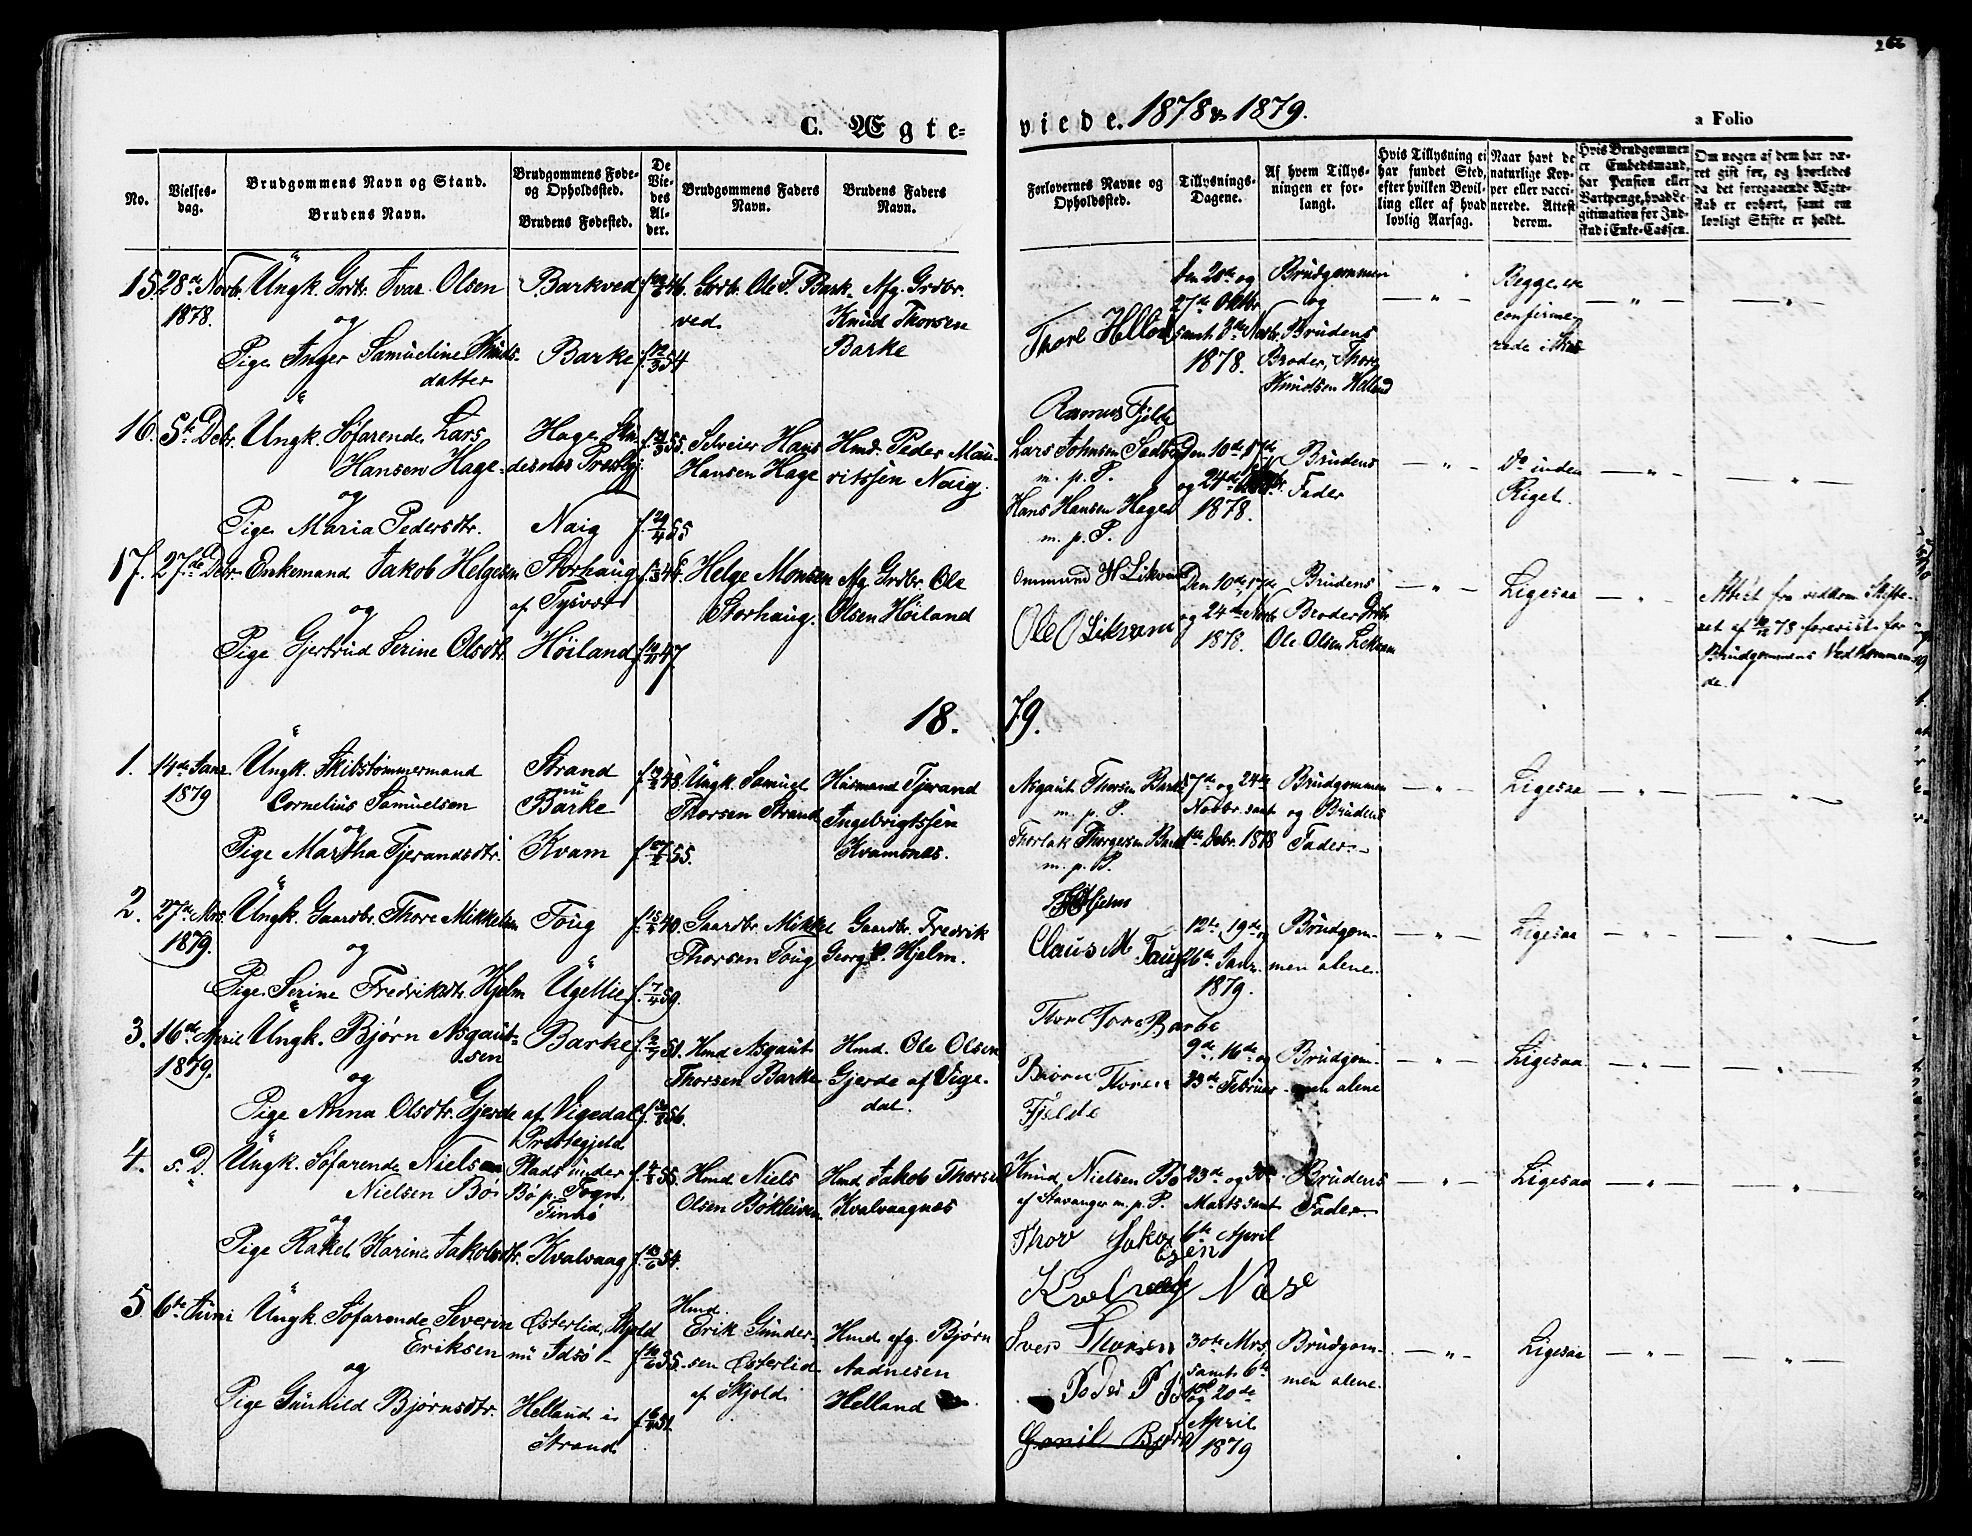 266
C. Ægte-
viede. 1878 & 1879.
a Folio
No.
Vielses-
dag.
Brudgommens Navn og Stand.
Brudens Navn.
Brudgommens Føde-
og Opholdssted.
Brudens Fødested.
De
Vie-
des
Al-
der.
Brudgommens Faders
Navn.
Brudens Faders
Navn.
Forlovernes Navne og
Opholdssted.
Tillysnings-
Dagene.
Af hvem Tillys-
ningen er for-
langt.
Hvis Tillysning ei
har fundet Sted,
efter hvilken Bevil-
ling eller af hvad
lovlig Aarsag.
Naar havt de
naturlige Kop-
per eller vacci-
nerede. Attest
derom.
Hvis Brudgommen
er Embedsmand,
har Pension eller
Vartpenge, hvad Le-
gitimation for Ind-
skud i Enke-Cassen.
Om nogen af dem har væ-
ret gift før, og hvorledes
da det foregaaende Ægte-
skab er ophørt, samt om
lovligt Skifte er holdt.
15. 28de Novbr.
1878.
Ungk. Grdbr. Ivar Olsen
og
Pige Inger Samueline Knuds-
datter
Barkved
Barke
46.
54
Grdbr. Ole T. Bark-
ved.
Afg. Grdbr.
Knud Thorsen
Barke
Thore Helland
Den 20de og
27de Oktbr.
samt 3de Novbr.
1878.
Brudgommen
og
Brudens
Broder, Thore
Knudsen Helland
Begge ere
confirme-
rede
16. 5te Debr.
Ungk. Søfarende Lars
Hansen Hage
og
Pige Maria Pedersdtr.
Hage
Naig
55.
55
Selveier Hans
Hansen Hage
Hmd. Peder Mau-
ritssen Naig.
Rasmus Fjelde
Lars Johnsen
m. p. P.
Hans Hansen Hage
m. p. P.
Den 10de, 17de
og 24de
1878.
Brudens
Fader
Do inden
Riget.
17. 27de Debr.
Enkemand Jakob Helgesen
og
Pige Gjertrud Serine Olsdtr.
Storhaug
af Tysvær
Høiland
47
Helge Monsen
Storhaug.
Afg. Grdbr Ole
Olsen Høiland
Ommund
Ole O Likvam
Den 10de, 17de
og 24de Novbr.
1878.
Brudens
Broder Grdbr.
Ole Olsen Lekvam
Ligesaa
Attest fra vedkom. Skifte-
ret af 78 forevist for
Brudgommens Vedkommen-
de.
18. 79.
1. 14de Janr.
1879
Ungk. Skibstømmermand
Cornelius Samuelsen
og
Pige Martha Tjerandsdtr.
Strand
nu
Barke
Kvam
48.
55.
Ungk. Samuel
Thorsen Strand
Husmand Tjerand
Ingebrigtssen
Kvamsnes.
Asgaut Thorsen Barke
m. p. P.
Thorlak Thorgersen Barke
m. p. P.
17de og 24de
Novbr. samt
1ste Debr. 1878
Brudgommen
og Brudens
Fader
Ligesaa
2. 27de Mrs.
1879.
Ungk. Gaardbr. Thore Mikkelsen
og
Pige Serine Fredriksdtr. Hjelm
Toug
40.
59.
Gaardbr. Mikkel
Thorsen Toug
Gaardbr. Fredrik
Georg Hjelm.
Hjelm
Claus M Taug
12te, 19de og
26de Janr.
1879.
Brudgom-
men alene.
Ligesaa
3. 16de April
1879.
Ungk. Bjørn Asgaut-
sen
og
Pige Anna Olsdtr. Gjerde
Barke
af Vigedal
Præstegjeld
51.
56.
Hmd Asgaut
Thorsen Barke
Hmd. Ole Olsen
Gjerde af Vige-
dal.
Thore Tore Barke
Bjørn Toren
Fjelde
9de, 16de og
23de Februar
Brudgom-
men alene
Ligesaa
4. s. D.
Ungk. Søfarende Nielsen
Nielsen Bø
og
Pige Rakel Karine Jakobsdtr.
Plads under
Bø p. Fogn,
Kvalvaag
55.
54.
Hmd Niels
Olsen Bøkleiven
Hmd Jakob Thorsen
Kvalvaagnes
Knud Nielsen Bø
af Stavanger m. p. P.
Thore Jakob
sen
Kvalvaag Næse
23de og 30te
Marts samt
6te April
Brudens
Fader
Ligesaa
5. 6te Juni
Ungk. Søfarende Severin
Eriksen
og
Pige Gunhild Bjørnsdtr.
Østerlid, Skjold
nu Idsø
Helland i
Strand
55.
51.
Hmd.
Erik Gunder-
sen Østerlid
af Skjold
Hmd. afg. Bjørn
Aadnesen
Helland
Sven Thorsen
Peder P
Gonil Bjor
30te Mrs,
samt 6te
og 20de
April
1879
Brudgom-
men alene.
Ligesaa